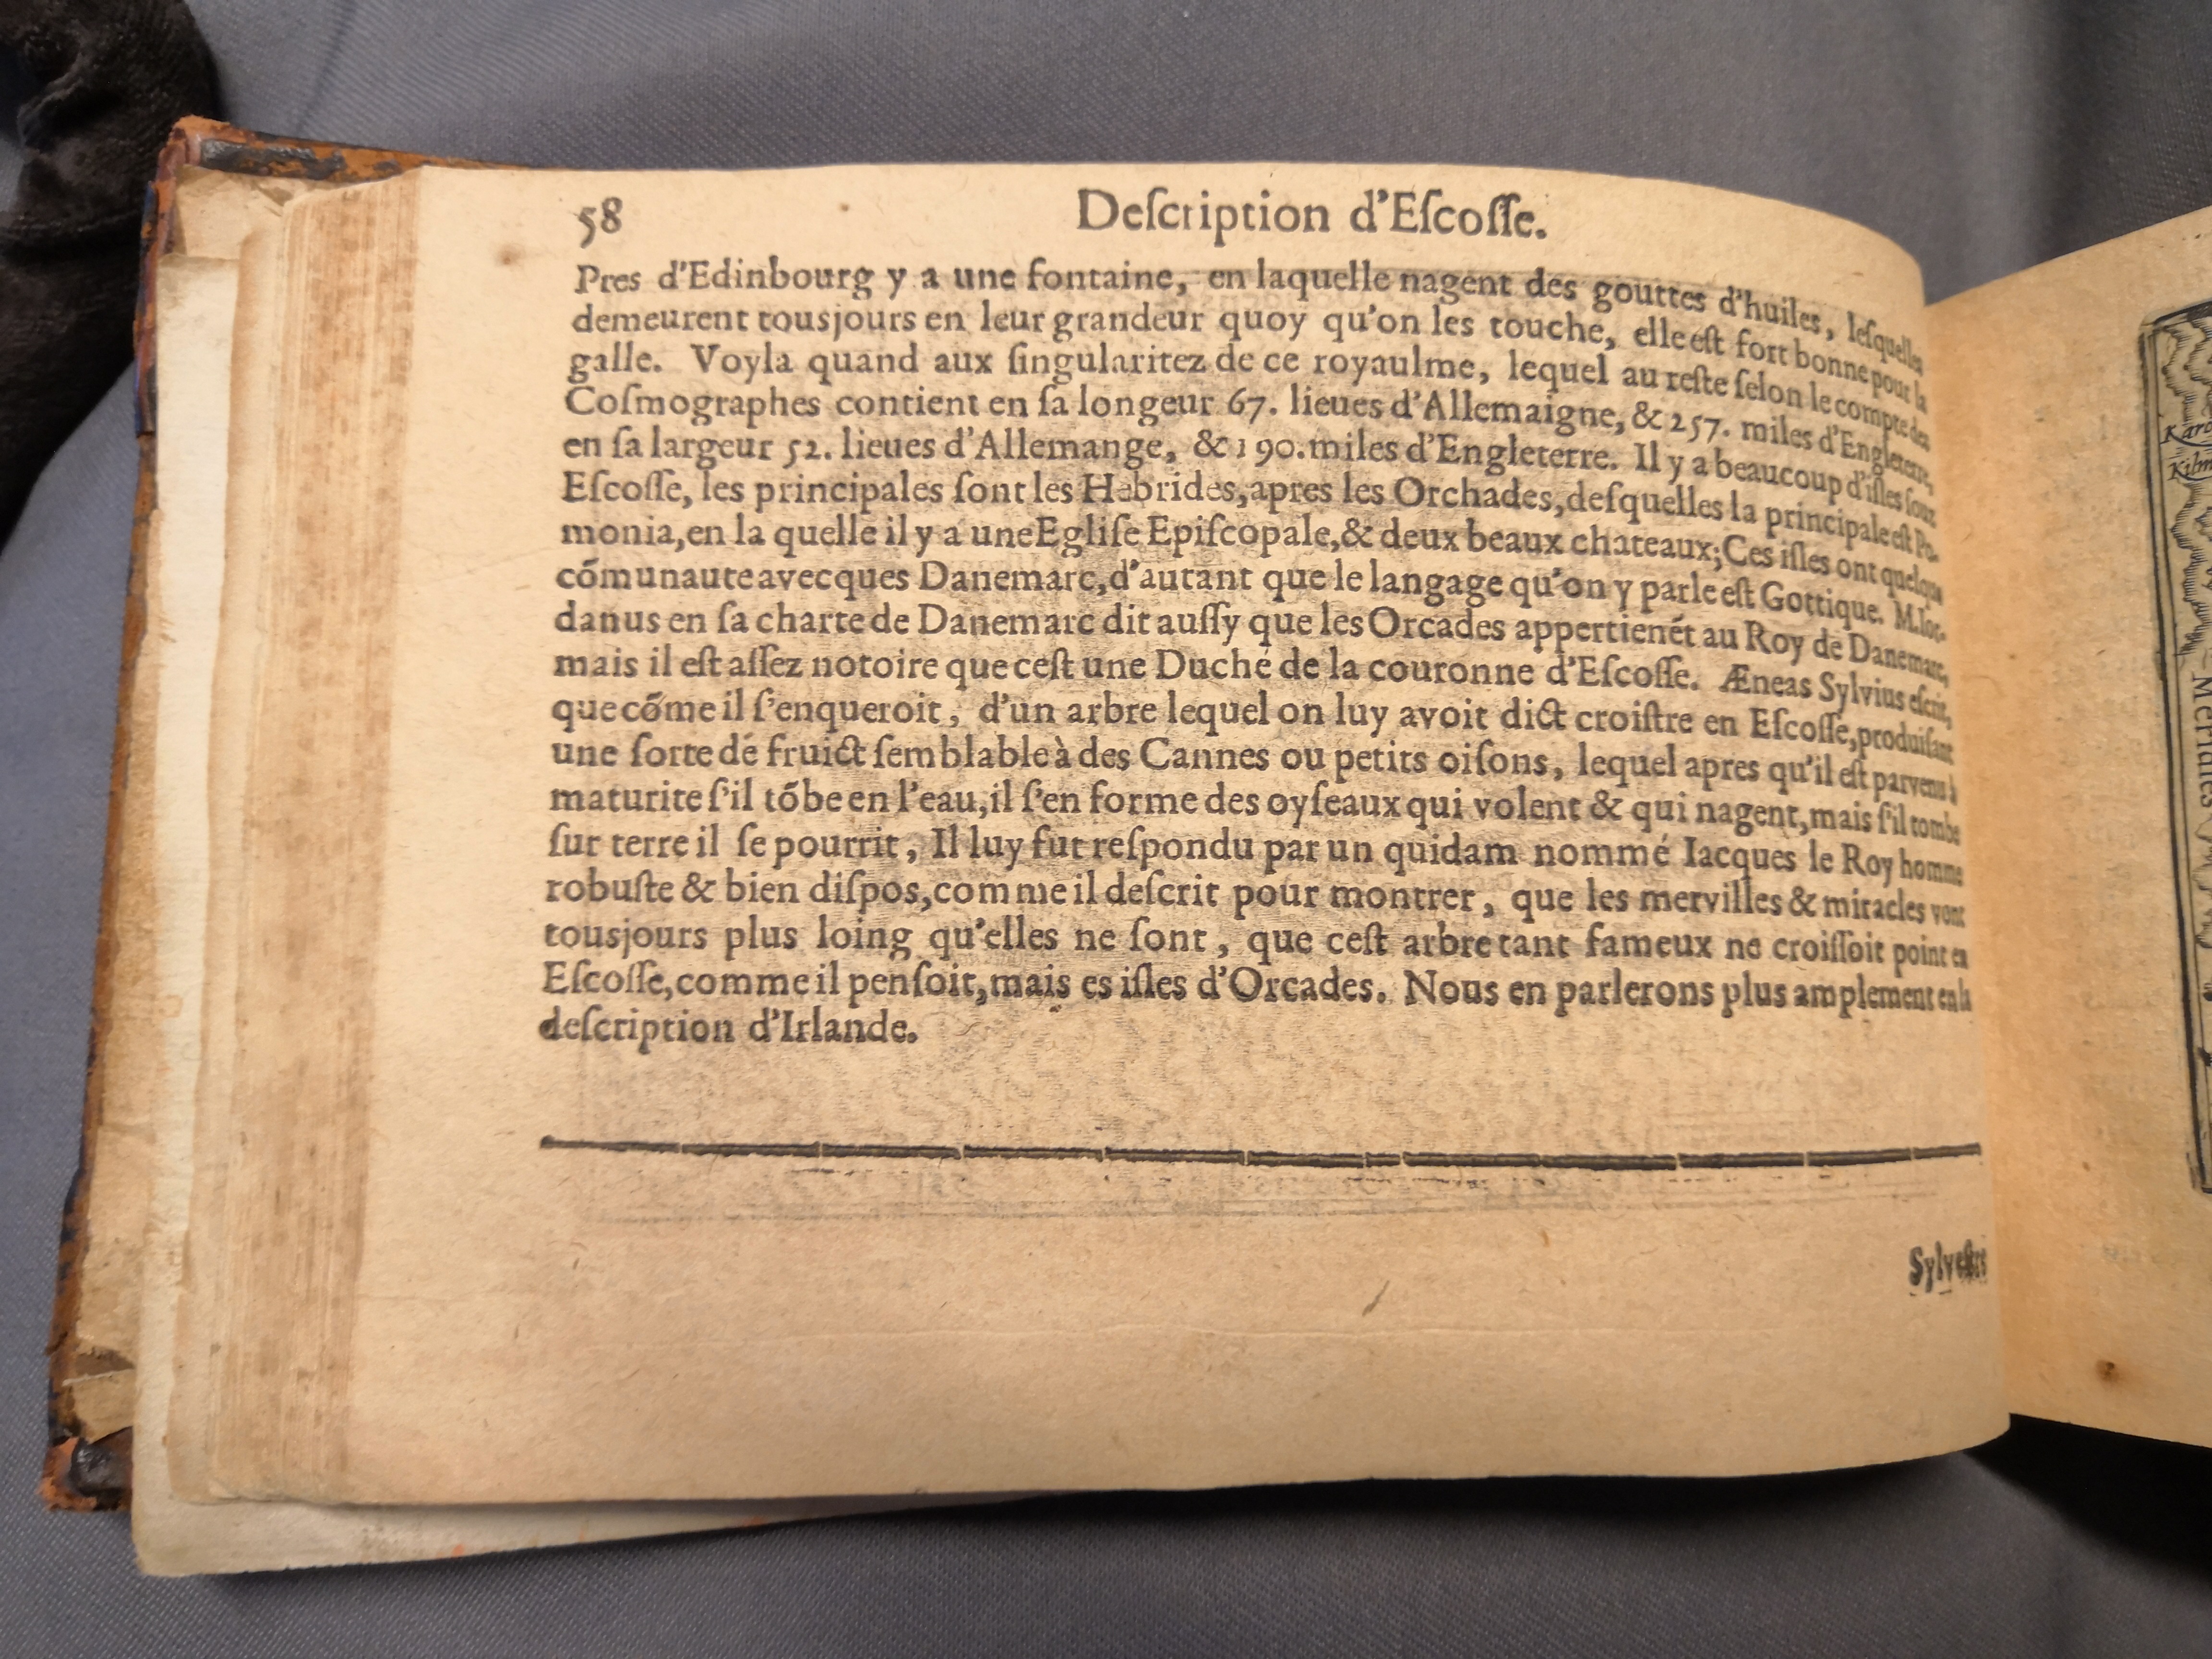 58 Deſcription d'Eſcoſſe.
Pres d'Edinbourg y a une fontaine, en laquelle nagent des gouttes d'huiles, leſquelles
demeurent tousjours en leur grandeur quoy qu'on les touche, elle eſt fort bonne pour la
galle. Voyla quand aux ſingularitez de ce royaulme, lequel au reſte ſelon le compte des
Coſmographes contient en ſa longeur 67. lieues d'Allemaigne, & 257. miles d'Engleterre,
en ſa largeur 52. lieues d'Allemange, & 190. miles d'Engleterre. Il y a beaucoup d'iſles ſouz
Eſcoſſe, les principales ſont les Hebrides, apres les Orchades, deſquelles la principale eſt Po-
monia, en la quelle il y a une Egliſe Epiſcopale, & deux beaux chateaux; Ces iſles ont quelque
cõmunaute avecques Danemarc, d'autant que le langage qu'on y parle eſt Gottique. M. Ior-
danus en ſa charte de Danemarc dit auſſy que les Orcades appertienẽt au Roy de Danemarc,
mais il eſt aſſez notoire que ceſt une Duché de la couronne d'Eſcoſſe. Æneas Sylvius eſcrit,
que cõme il ſ'enqueroit, d'un arbre lequel on luy avoit dict croiſtre en Eſcoſſe, produiſant
une ſorte dé fruict ſemblable à des Cannes ou petits oiſons, lequel apres qu'il eſt parvenu à
maturite ſ'il tõbe en l'eau, il ſ'en forme des oyſeaux qui volent & qui nagent, mais ſ'il tombe
ſur terre il ſe pourrit, Il luy fut reſpondu par un quidam nommé Iacques le Roy homme
robuſte & bien diſpos, comme il deſcrit pour montrer, que les mervilles & miracles vont
tousjours plus loing qu'elles ne ſont, que ceſt arbre tant fameux ne croiſſoit point en
Eſcoſſe, comme il penſoit, mais es iſles d'Orcades. Nous en parlerons plus amplement en la
deſcription d'Irlande.
Sylveſtre